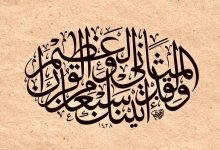 ولقد آتيناك سبعا من المثاني والقرآن العظيم